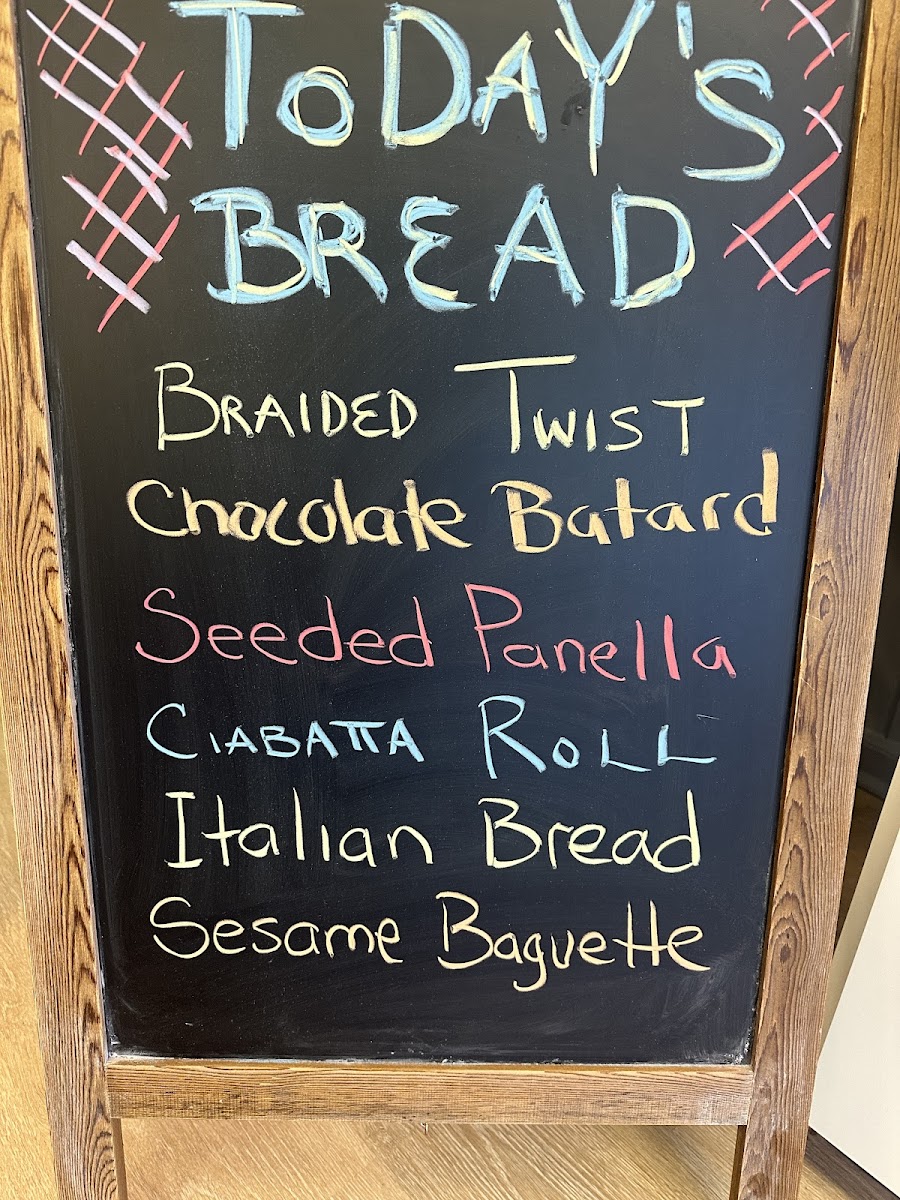 ToDAY'S
BREAD
BRAIDED TWIST
Chocolate Batard
Seeded Panella
CIABATTA ROLL
Italian Bread
Sesame Baguette